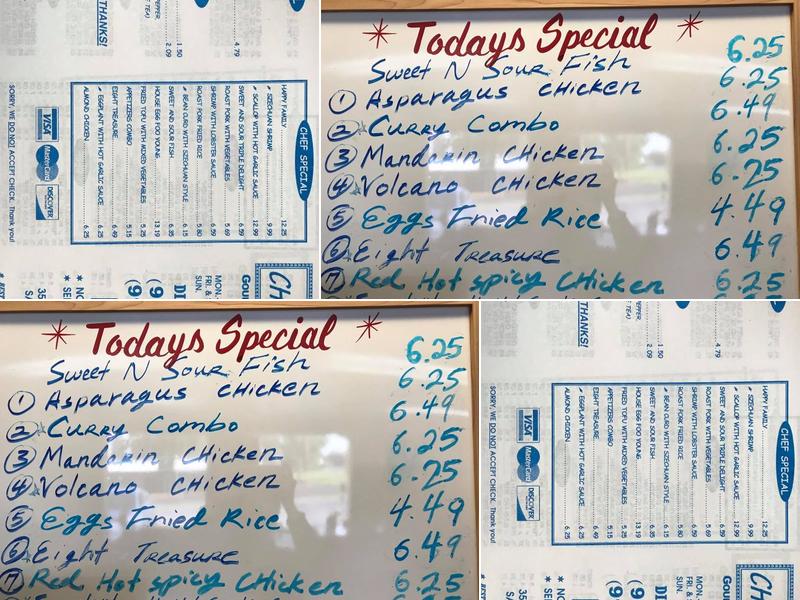 4.79
1.50
2.09
PEPPER,
TEA)
THANKS!
CHEF SPECIAL
HAPPY FAMILY 12.25
SZECHUAN SHRIMP 9.99
SCALLOP WITH HOT GARLIC SAUCE 12.99
SWEET AND SOUR TRIPLE DELIGHT 6.59
ROAST PORK WITH VEGETABLES 5.69
SHRIMP WITH LOBSTER SAUCE 6.59
ROAST PORK FRIED RICE 5.80
BEAN CURD WITH SZECHUAN STYLE 6.15
SWEET AND SOUR FISH 6.35
HOUSE EGG FOO YOUNG 13.19
FRIED TOFU WITH MIXED VEGETABLES 5.25
APPETIZERS COMBO 5.15
EIGHT TREASURE 6.49
EGGPLANT WITH HOT GARLIC SAUCE 6.25
ALMOND CHICKEN 6.25
VISA MasterCard DISCOVER
SORRY, WE DO NOT ACCEPT CHECK. Thank you!
Todays Special
Sweet N Sour Fish 6.25
1 Asparagus Chicken 6.25
2 Curry Combo 6.49
3 Mandarin Chicken 6.25
4 Volcano Chicken 6.25
5 Eggs Fried Rice 4.49
6 Eight Treasure 6.49
7 Red Hot spicy Chicken 6.25
Todays Special
Sweet N Sour Fish 6.25
1 Asparagus Chicken 6.25
2 Curry Combo 6.49
3 Mandarin Chicken 6.25
4 Volcano Chicken 6.25
5 Eggs Fried Rice 4.49
6 Eight Treasure 6.49
7 Red Hot spicy Chicken 6.25
4.79
1.50
2.09
PEPPER,
TEA)
THANKS!
CHEF SPECIAL
HAPPY FAMILY 12.25
SZECHUAN SHRIMP 9.99
SCALLOP WITH HOT GARLIC SAUCE 12.99
SWEET AND SOUR TRIPLE DELIGHT 6.59
ROAST PORK WITH VEGETABLES 5.69
SHRIMP WITH LOBSTER SAUCE 6.59
ROAST PORK FRIED RICE 5.80
BEAN CURD WITH SZECHUAN STYLE 6.15
SWEET AND SOUR FISH 6.35
HOUSE EGG FOO YOUNG 13.19
FRIED TOFU WITH MIXED VEGETABLES 5.25
APPETIZERS COMBO 5.15
EIGHT TREASURE 6.49
EGGPLANT WITH HOT GARLIC SAUCE 6.25
ALMOND CHICKEN 6.25
VISA MasterCard DISCOVER
SORRY, WE DO NOT ACCEPT CHECK. Thank you!